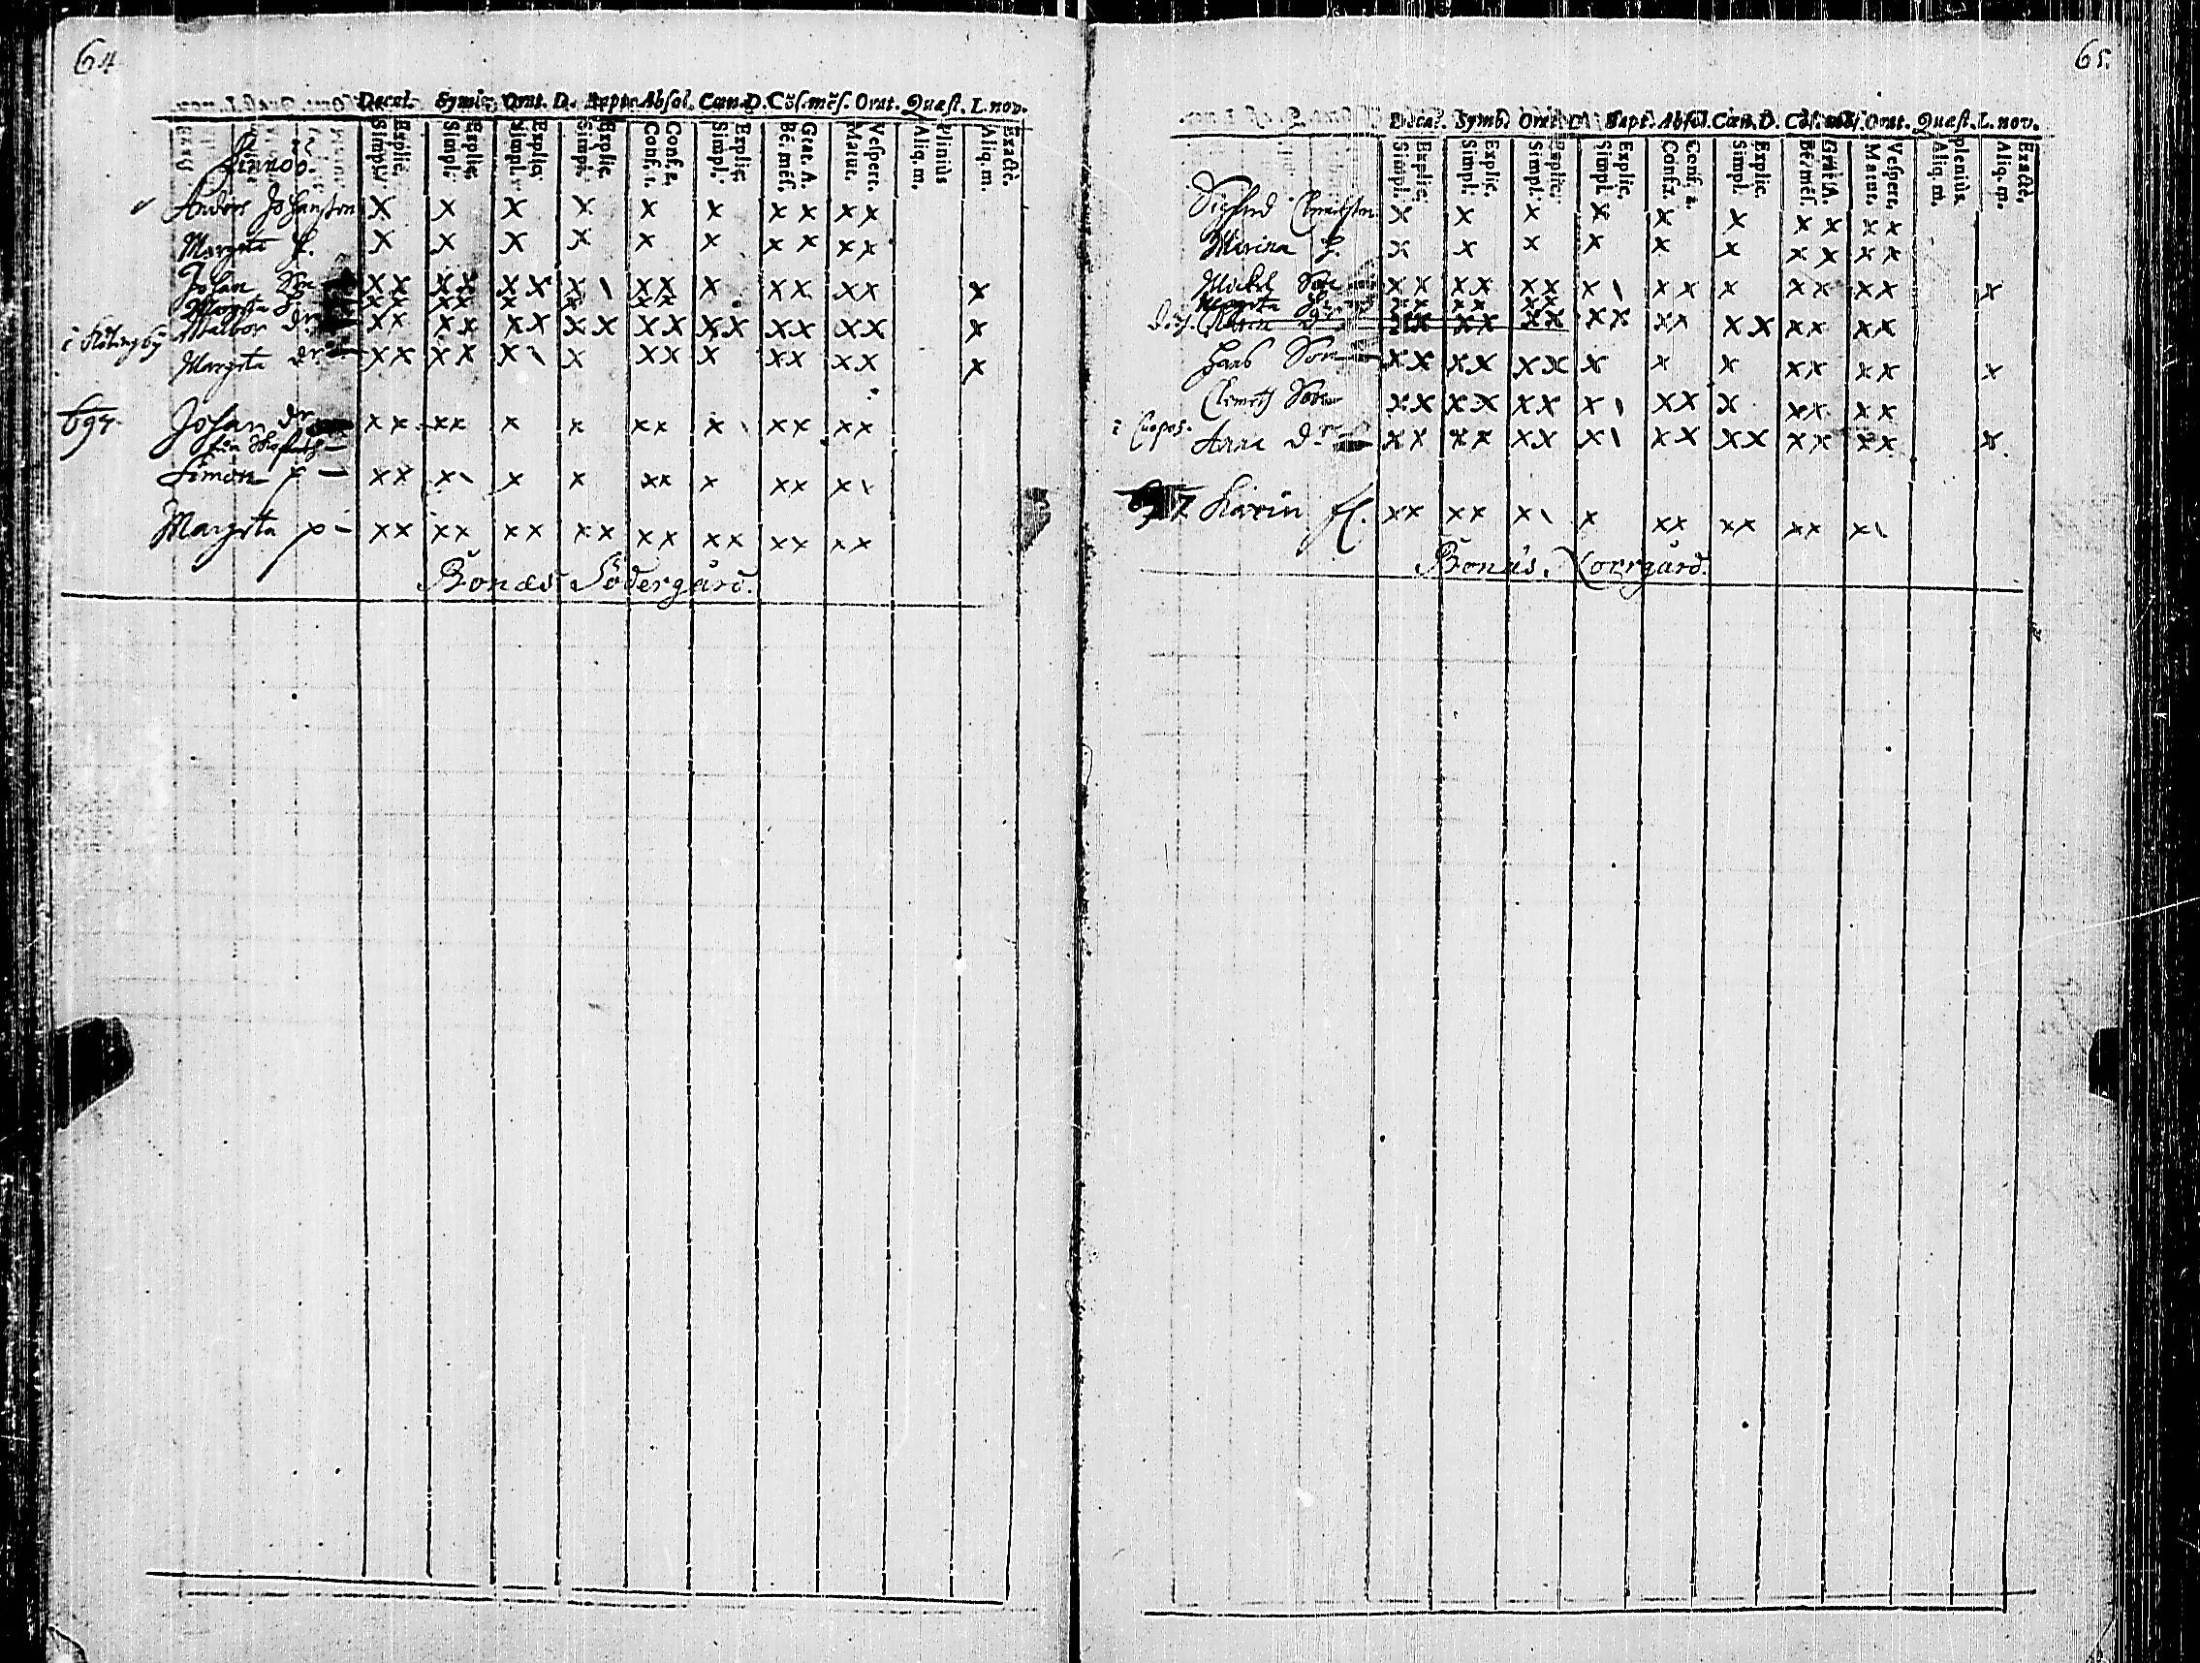 64
Decal. Symb. Orat. D. Bapt. Absol. Cœn. D. Cōf. mēs. Orat. Quæst. L. nov.
Simpl. Explic. Simpl. Explic. Simpl. Explic. Simpl. Explic. Conf. 1. Conf. 2. Simpl. Explic. Bē. mēs. Grat. A. Matut. Vespert. Aliq. m. Pleniùs Aliq. m. Exactè.
Anders Johansson x x x x x x x x x x
Margeta h. x x x x x x x x x x
Johan Son x x x x x x x \ x x x x x x x x
Margeta
Malbor dr x x x x x x x x x x x x x x x x x
Margeta dr x x x x x \ x x x x x x x x x
694.
Johan dr x x x x x x x x x \ x x x x
Simon p x x x \ x x x x x x x x \
Margeta p x x x x x x x x x x x x x x x x
Bonæs Södergård.
65.
Decal. Symb. Orat. D. Bapt. Absol. Cœn. D. Cōf. mēs. Orat. Quæst. L. nov.
Simpl. Explic. Simpl. Explic. Simpl. Explic. Simpl. Explic. Conf. 1. Conf. 2. Simpl. Explic. Bē. mēs. Grat. A. Matut. Vespert. Aliq. m. pleniùs. Aliq. m. Exactè.
Sigfred Clemetsson x x x x x x x x x x
Marina h. x x x x x x x x x x
Mickel Son x x x x x x x \ x x x x x x x x
Margeta
Karin dr x x x x x x x x x x x x x x x x
Hans Son x x x x x x x x x x x x x x
Clemeth Son x x x x x x x \ x x x x x x x
Anna dr x x x x x x x \ x x x x x x x x x
Karin p. x x x x x \ x x x x x x x x \
Bonäs. Norrgård.